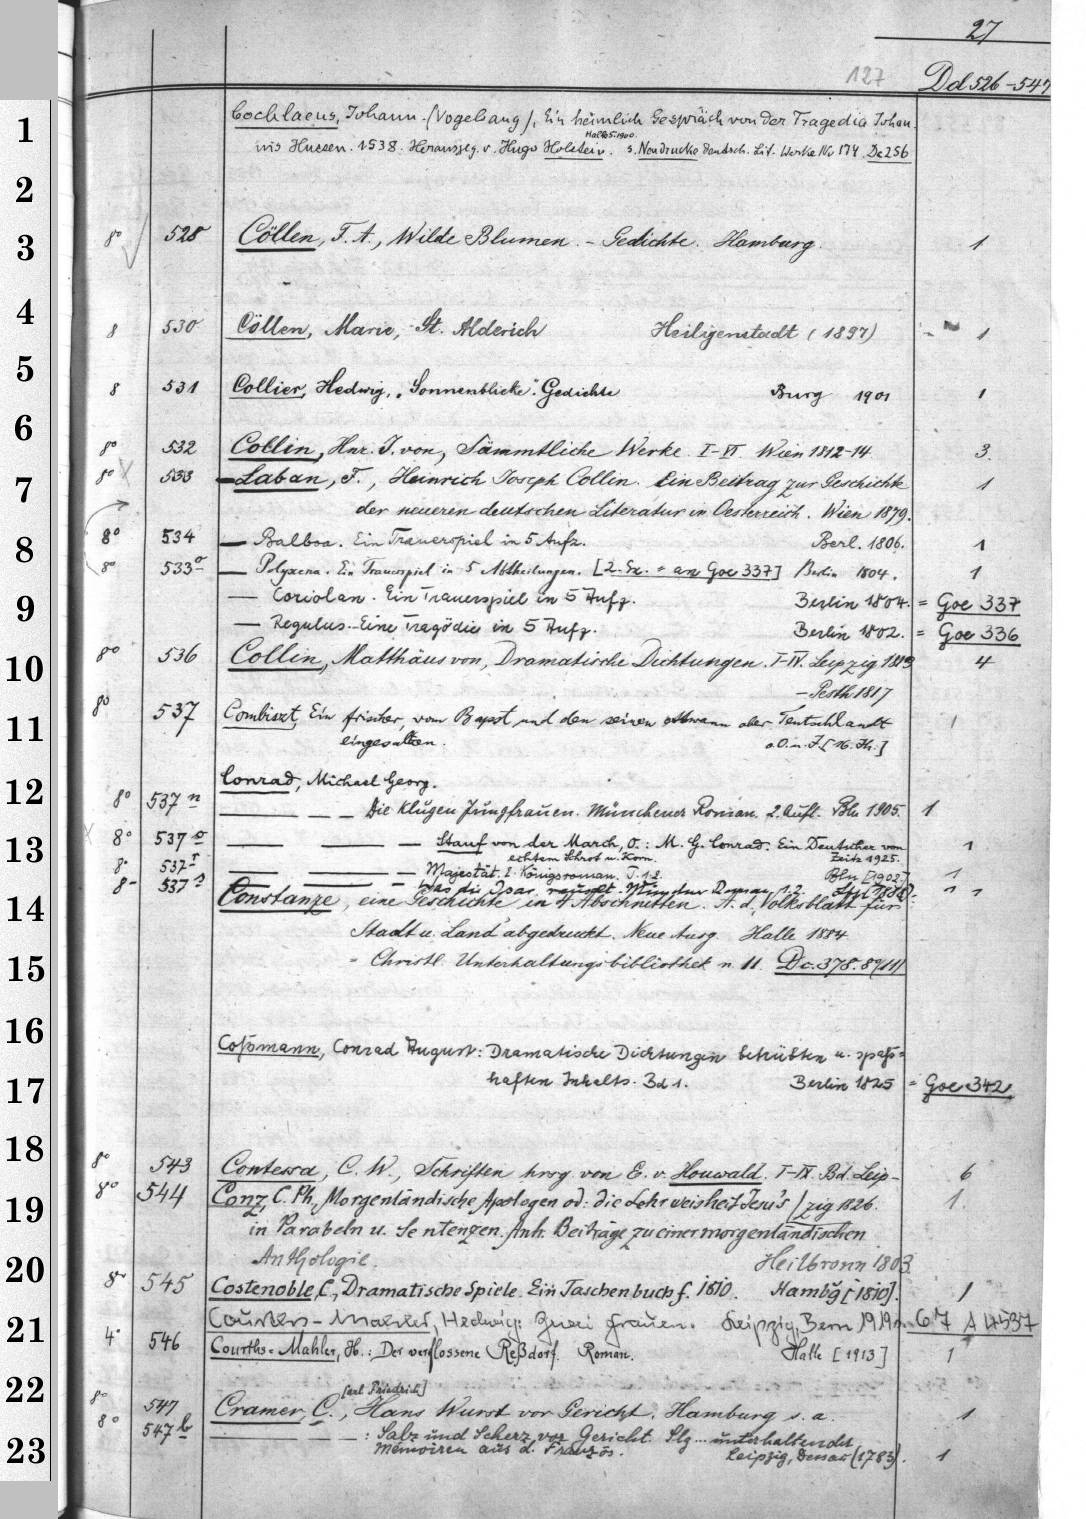 27
127
Dd 526-547
Cochlaeus, Johann (Vogelsang), Ein heimlich Gespräch von der Tragedia Johan
Halle S. 1900.
nis Hussen. 1538. Herausgg. v. Hugo Holstein. s. Neudrucke deutsch. Lit. Werke Nr 174. De 256
8° 528 Cöllen, F. A., Wilde Blumen. – Gedichte. Hamburg. 1
8 530 Cöllen, Marie, St. Alderich Heiligenstadt (1897) 1
8 531 Collier, Hedwig, „Sonnenblicke". Gedichte Burg 1901 1
8° 532 Collin, Hnr. J. von, Sämmtliche Werke I-VI Wien 1812-14 3.
8° 533 — Laban, F., Heinrich Joseph Collin. Ein Beitrag zur Geschichte 1
der neueren deutschen Literatur in Oesterreich. Wien 1879.
8° 534 — Balboa. Ein Trauerspiel in 5 Aufz. Berl. 1806. 1
8° 533 — Polyxena. Ein Trauerspiel in 5 Abtheilungen. [2. Ex. = an Goe 337] Berlin 1804. 1
— Coriolan. Ein Trauerspiel in 5 Aufz. Berlin 1804. = Goe 337
— Regulus. Eine Tragödie in 5 Aufz. Berlin 1802. = Goe 336
8° 536 Collin, Matthäus von, Dramatische Dichtungen. I-IV. Leipzig 1813 4
– Pesth 1817
8° 537 Combiszt, Ein frischer, vom Bapst und den seinen über Teutschlandt 1
eingesalten. o.O. u. J. [16. Jh.]
Conrad, Michael Georg.
8° 537 n — — — Die klugen Jungfrauen. Münchener Roman. 2. Aufl. Bln 1905. 1
8° 537 o — — — Stauf von der March, O.: M. G. Conrad. Ein Deutscher von 1
echtem Schrot u. Korn. Zeitz 1925.
8° 537 r — — — Majestät. E. Königsroman. T. 1.2. Bln [1902] 1
8° 537 s — Was die Isar rauscht. Münchn Roman 1.2. 1
Constanze, eine Geschichte in 4 Abschnitten. A. d. Volksblatt für
Stadt u. Land abgedruckt. Neue Ausg. Halle 1884
= Christl. Unterhaltungsbibliothek n. 11. Dc. 378. 8°(11)
Coßmann, Conrad August: Dramatische Dichtungen betrübten u. spaß=
haften Inhalts. Bd 1. Berlin 1825 = Goe 342
8° 543 Contessa, C. W., Schriften hrsg von E. v. Houwald. I-IX. Bd. Leip- 6
8° 544 Conz, C. Ph., Morgenländische Apologen od: die Lehrweisheit Jesu's / zig 1826. 1.
in Parabeln u. Sentenzen. Anh. Beiträge zu einer morgenländischen
Anthologie. Heilbronn 1803
8° 545 Costenoble, C., Dramatische Spiele. Ein Taschenbuch f. 1810. Hambg [1810]. 1
Courths-Mahler, Hedwig: Zwei Frauen. Leipzig, Bern 1919 67 A 4537
4° 546 Courths-Mahler, H.: Der verflossene Reßdorf. Roman. Halle [1913] 1
[Carl Friedrich]
8° 547 Cramer, C., Hans Wurst vor Gericht. Hamburg s. a. 1
8° 547 b — — : Salz und Scherz vor Gericht. Slg ... unterhaltender
Memoiren aus d. Französ. Leipzig, Dessau (1783). 1
1
2
3
4
5
6
7
8
9
10
11
12
13
14
15
16
17
18
19
20
21
22
23